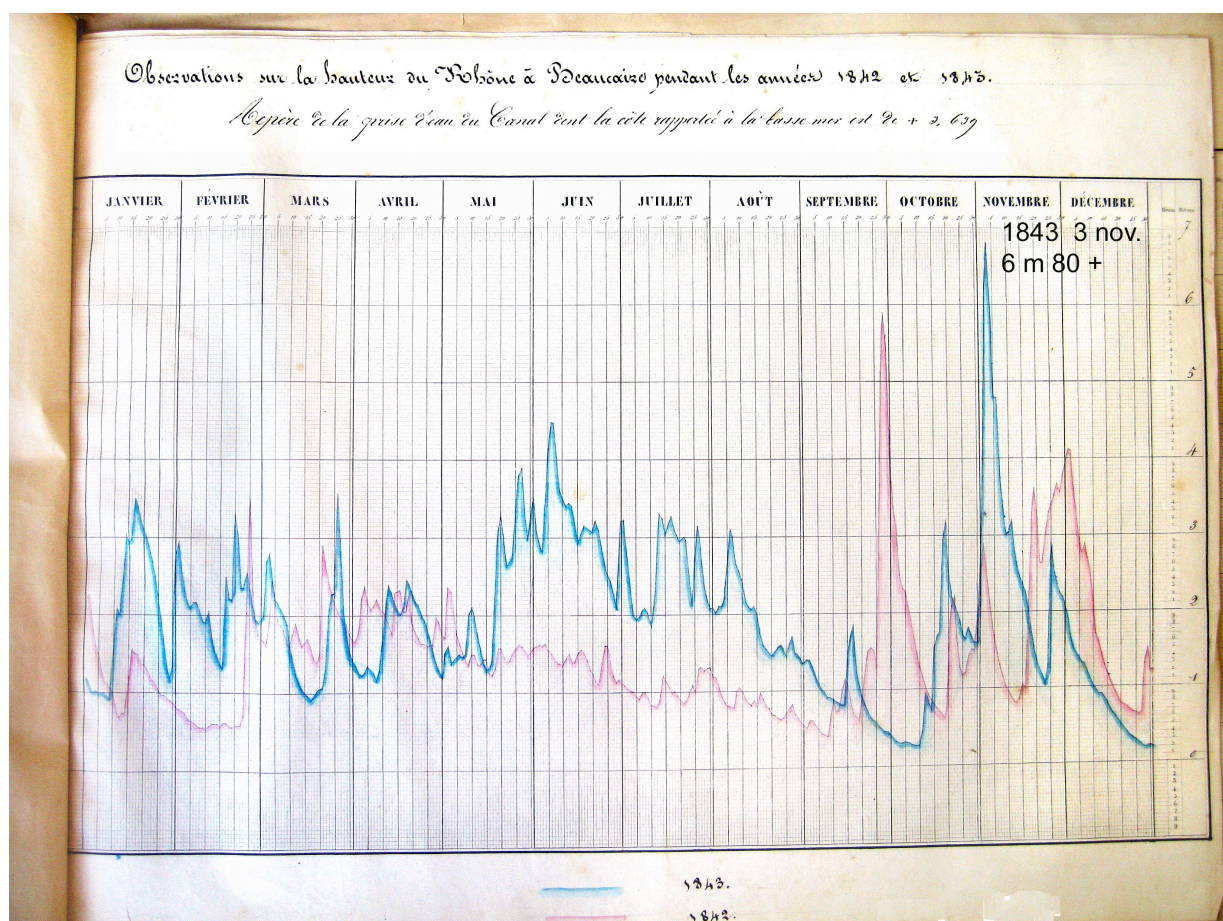 Observations sur la hauteur du Rhône à Beaucaire pendant les années 1842 et 1843.
Repère de la prise d'eau du Canal dont la côte rapportée à la basse mer est de + 3,639
JANVIER FÉVRIER MARS AVRIL MAI JUIN JUILLET AOÙT SEPTEMBRE OCTOBRE NOVEMBRE DÉCEMBRE
1843 3 nov.
6 m 80 +
7
6
5
4
3
2
1
0
1843.
1842.